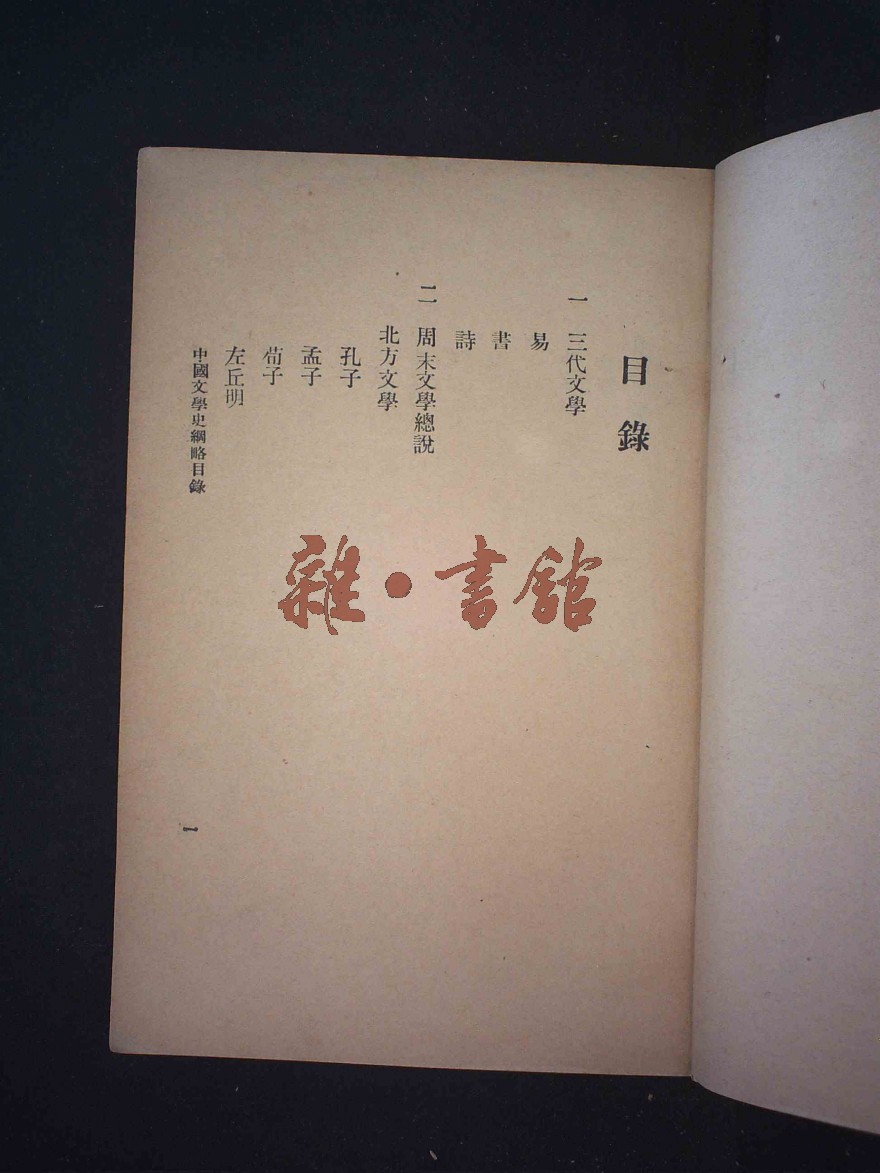 目錄
一 三代文學
易
書
詩
二 周末文學總說
北方文學
孔子
孟子
荀子
左丘明
中國文學史綱略目錄
一
雜·書館